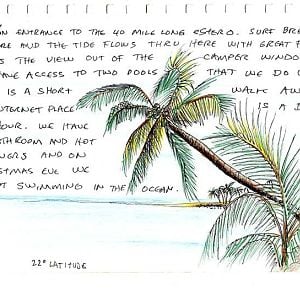 ENTRANCE TO THE 40 MILE LONG ESTERO. SURF BRE
RE AND THE TIDE FLOWS THRU HERE WITH GREAT F
S THE VIEW OUT OF THE CAMPER WINDO
AVE ACCESS TO TWO POOLS THAT WE DO
IS A SHORT WALK AW
NTERNET PLACE IS A
OUR. WE HAVE
THROOM AND HOT
NGRS AND ON
STMAS EVE WE
T SWIMMING IN THE OCEAN.
22° LATITUDE